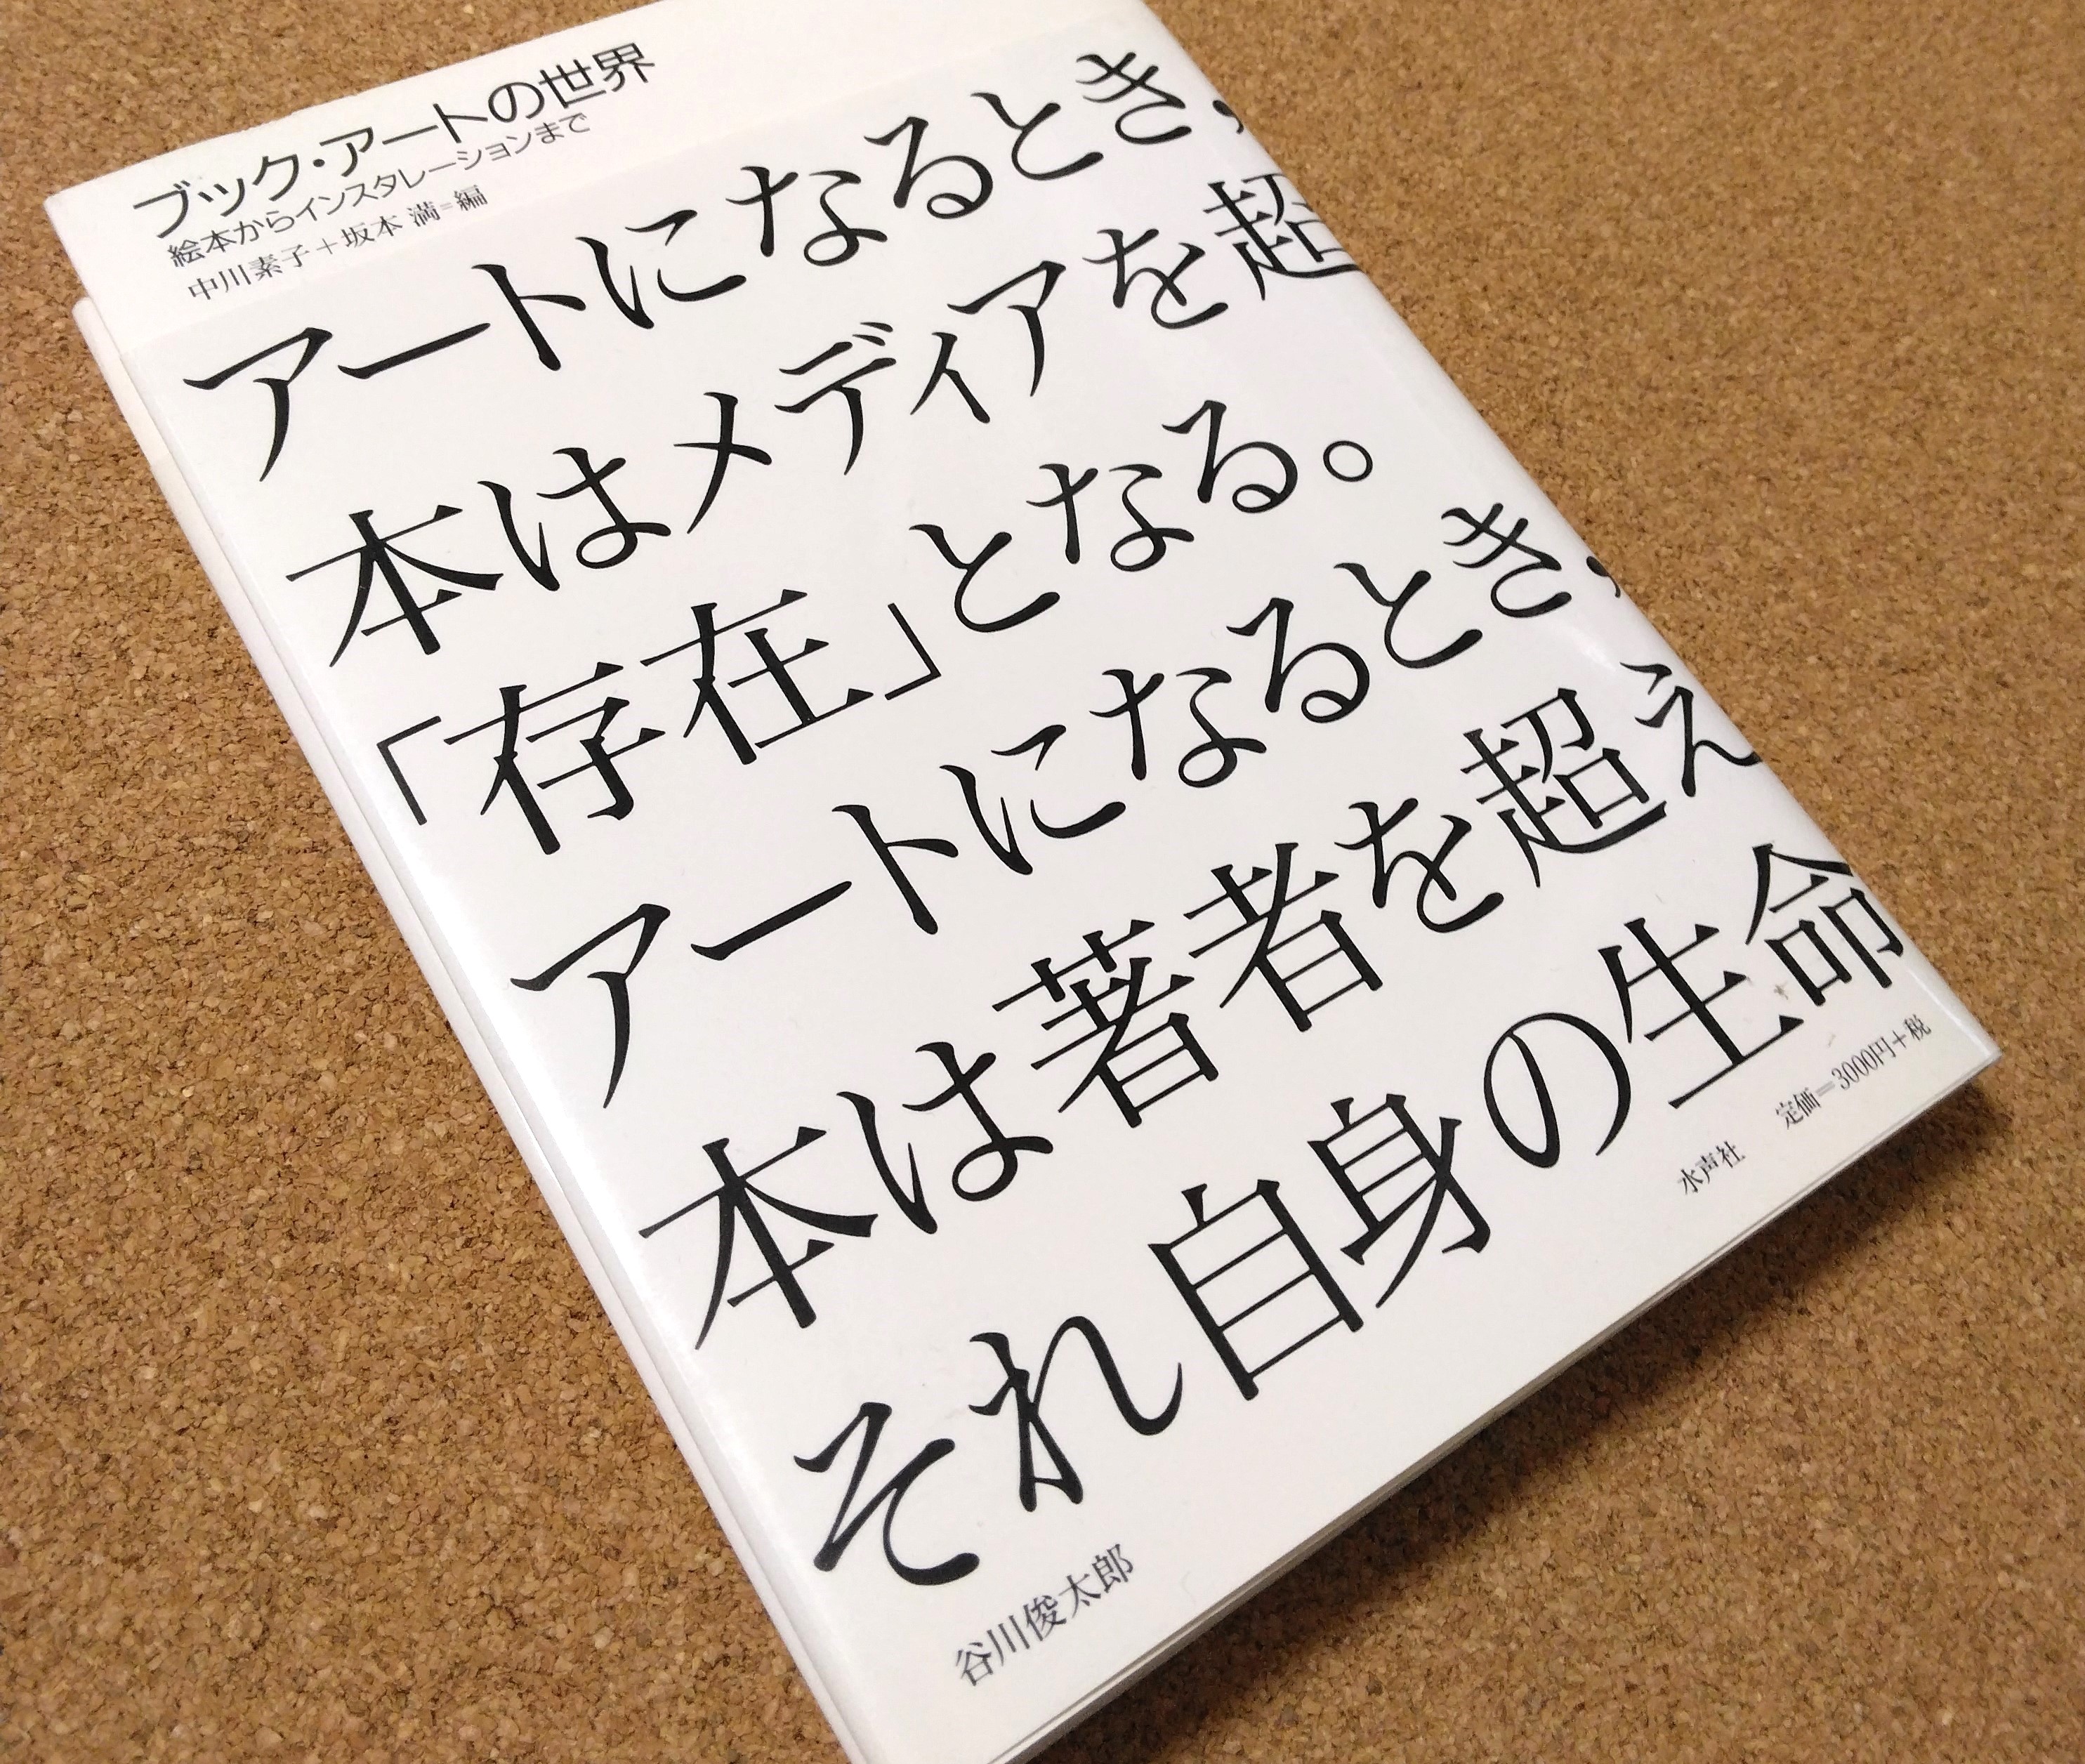 ブック・アートの世界
絵本からインスタレーションまで
中川素子＋坂本 満=編
アートになるとき,
本はメディアを超
「存在」となる。
アートになるとき,
本は著者を超え
それ自身の生命
谷川俊太郎
水声社
定価＝3000円＋税